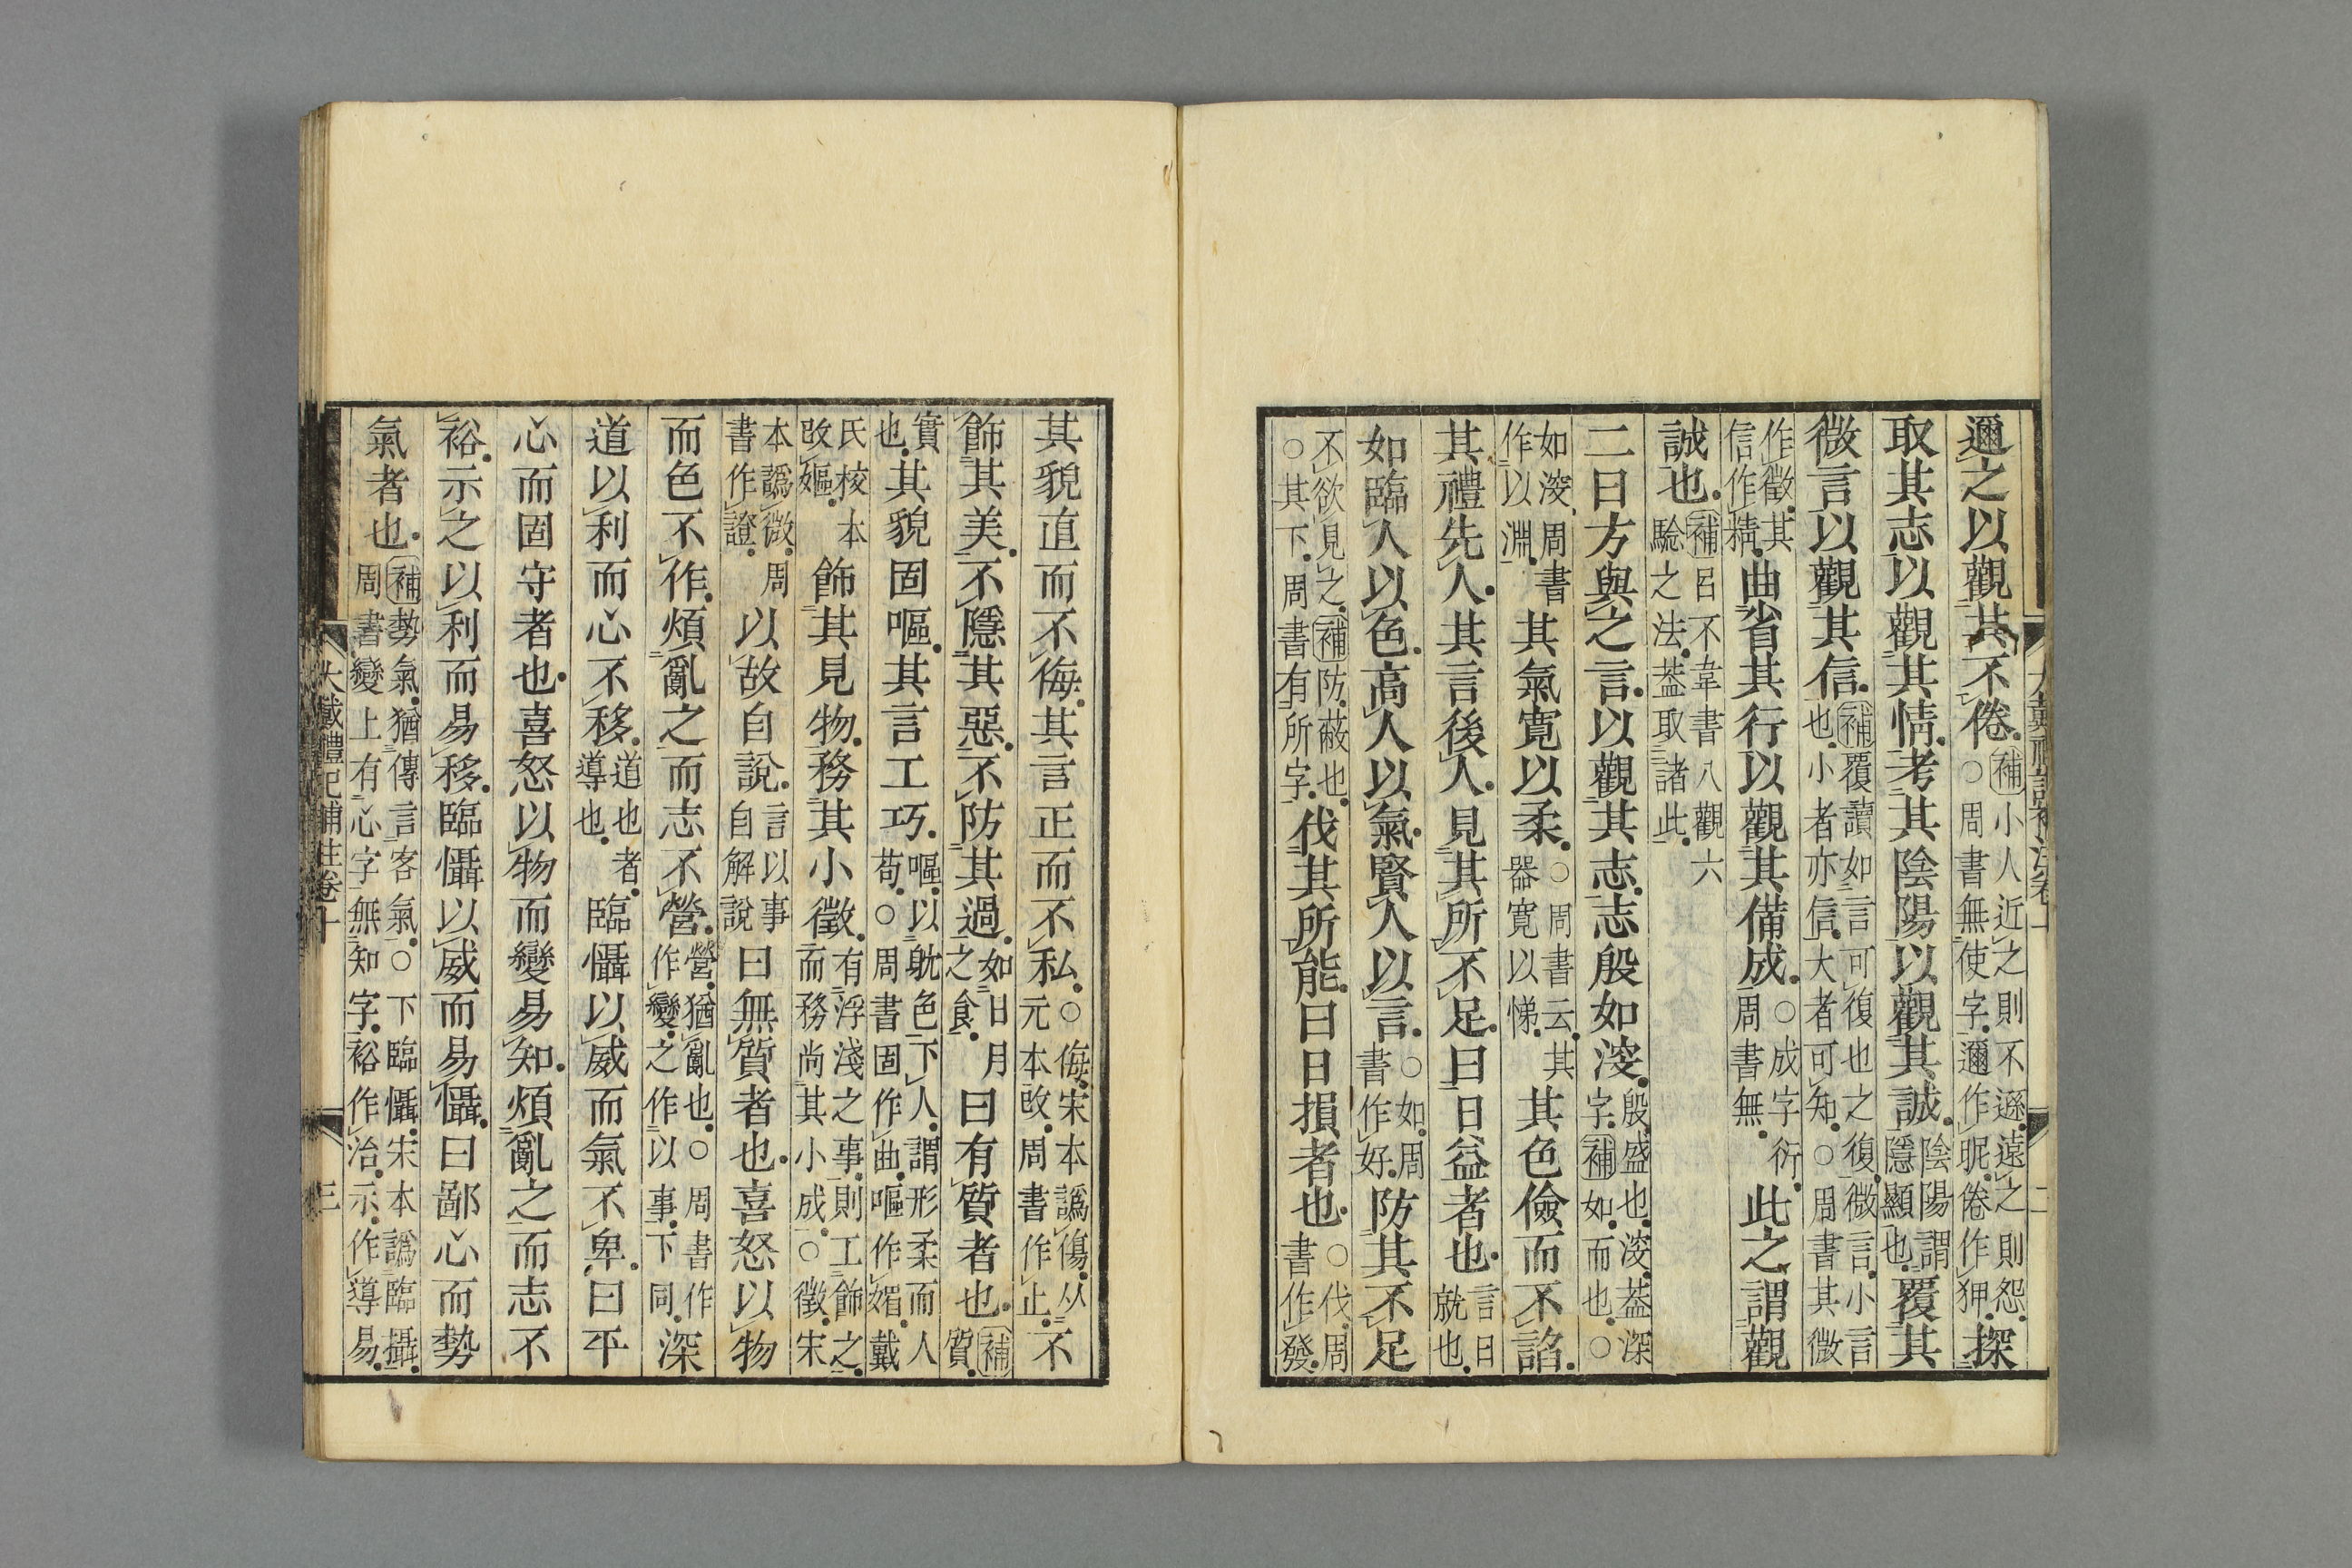 邇之以觀其不倦補小人近之則不遜遠之則怨○周書無使字邇作昵倦作狎探
取其志以觀其情考其陰陽以觀其誠陰陽謂隱顯也覆其
微言以觀其信補覆讀如言可復也之復微言小言也小者亦信大者可知○周書其微
作徵其信作精曲省其行以觀其備成○成字衍周書無此之謂觀
誠也補呂不韋書八觀六驗之法葢取諸此
二曰方與之言以觀其志志殷如深殷盛也深葢深字補如而也○
如深周書作以淵其氣寬以柔○周書云其器寬以悌其色儉而不諂
其禮先人其言後人見其所不足曰日益者也言日就也
如臨人以色高人以氣賢人以言○如周書作好防其不足
不欲見之補防蔽也○其下周書有所字伐其所能曰日損者也○伐周書作發
大戴禮記補注卷十
二
其貌直而不侮其言正而不私○侮宋本譌傷从元本改周書作止不
飾其美不隱其惡不防其過如日月之食曰有質者也補質
實也其貌固嘔其言工巧嘔以躭色下人謂形柔而人苟○周書固作曲嘔作媚戴
氏校本改嫗飾其見物務其小徵有浮淺之事則工飾之而務尚其小成○徵宋
本譌微周書作證以故自說言以事自解說曰無質者也喜怒以物
而色不作煩亂之而志不營營猶亂也○周書作作變之作以事下同深
道以利而心不移道也者導也臨懾以威而氣不卑曰平
心而固守者也喜怒以物而變易知煩亂之而志不
裕示之以利而易移臨懾以威而易懾曰鄙心而勢
氣者也補勢氣猶傳言客氣○下臨懾宋本譌臨攝周書變上有心字無知字裕作治示作導易
大戴禮記補注卷十
三